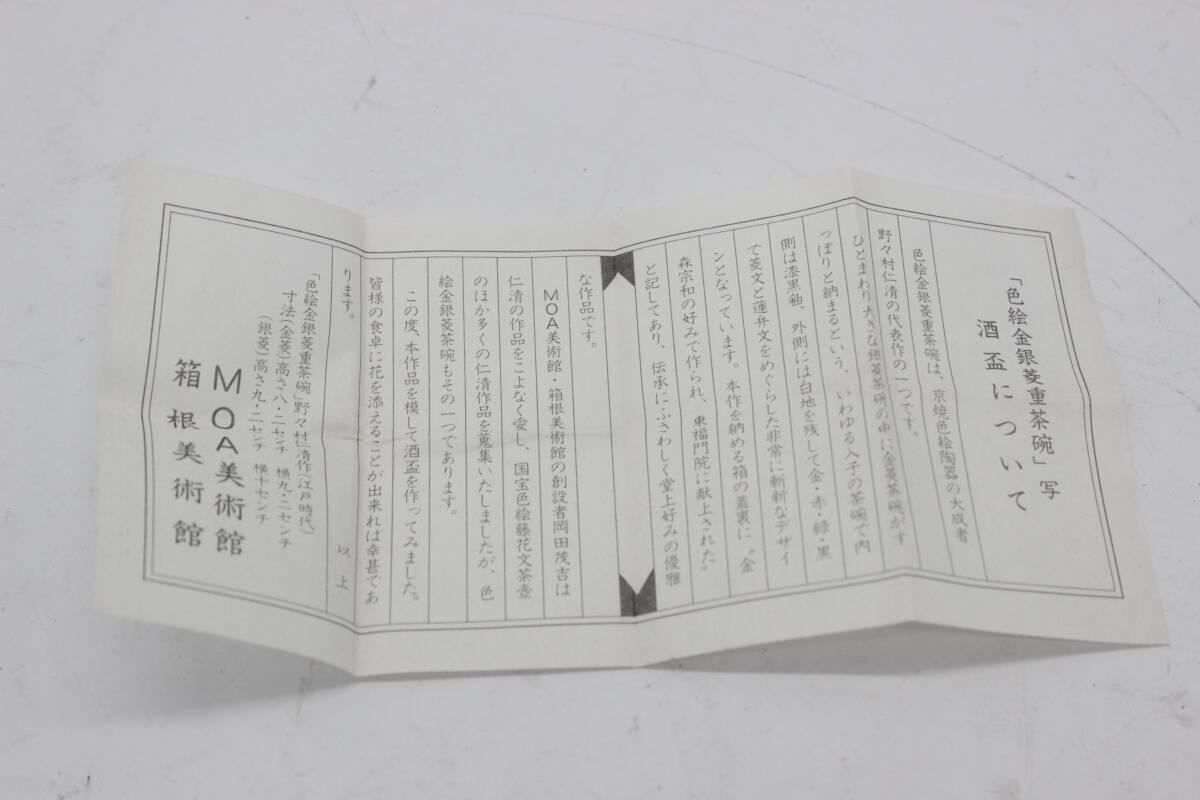 「色絵金銀菱重茶碗」写
酒盃について
色絵金銀菱重茶碗は、京焼色絵陶器の大成者
野々村仁清の代表作の一つです。
ひとまわり大きな銀菱茶碗の中に金菱茶碗がす
っぽりと納まるという、いわゆる入子の茶碗で内
側は漆黒釉、外側には白地を残して金・赤・緑・黒
で菱文と蓮弁文をめぐらした非常に斬新なデザイ
ンとなっています。本作を納める箱の蓋裏に〝金
森宗和の好みで作られ、東福門院に献上された〟
と記してあり、伝承にふさわしく堂上好みの優雅
な作品です。
MOA美術館・箱根美術館の創設者岡田茂吉は
仁清の作品をこよなく愛し、国宝色絵藤花文茶壺
のほか多くの仁清作品を蒐集いたしましたが、色
絵金銀菱茶碗もその一つであります。
この度、本作品を模して酒盃を作ってみました。
皆様の食卓に花を添えることが出来れば幸甚であ
ります。
以上
「色絵金銀菱重茶碗」野々村仁清作(江戸時代)
寸法(金菱)高さ八・二センチ 横九・二センチ
(銀菱)高さ九・二センチ 横十センチ
MOA美術館
箱根美術館